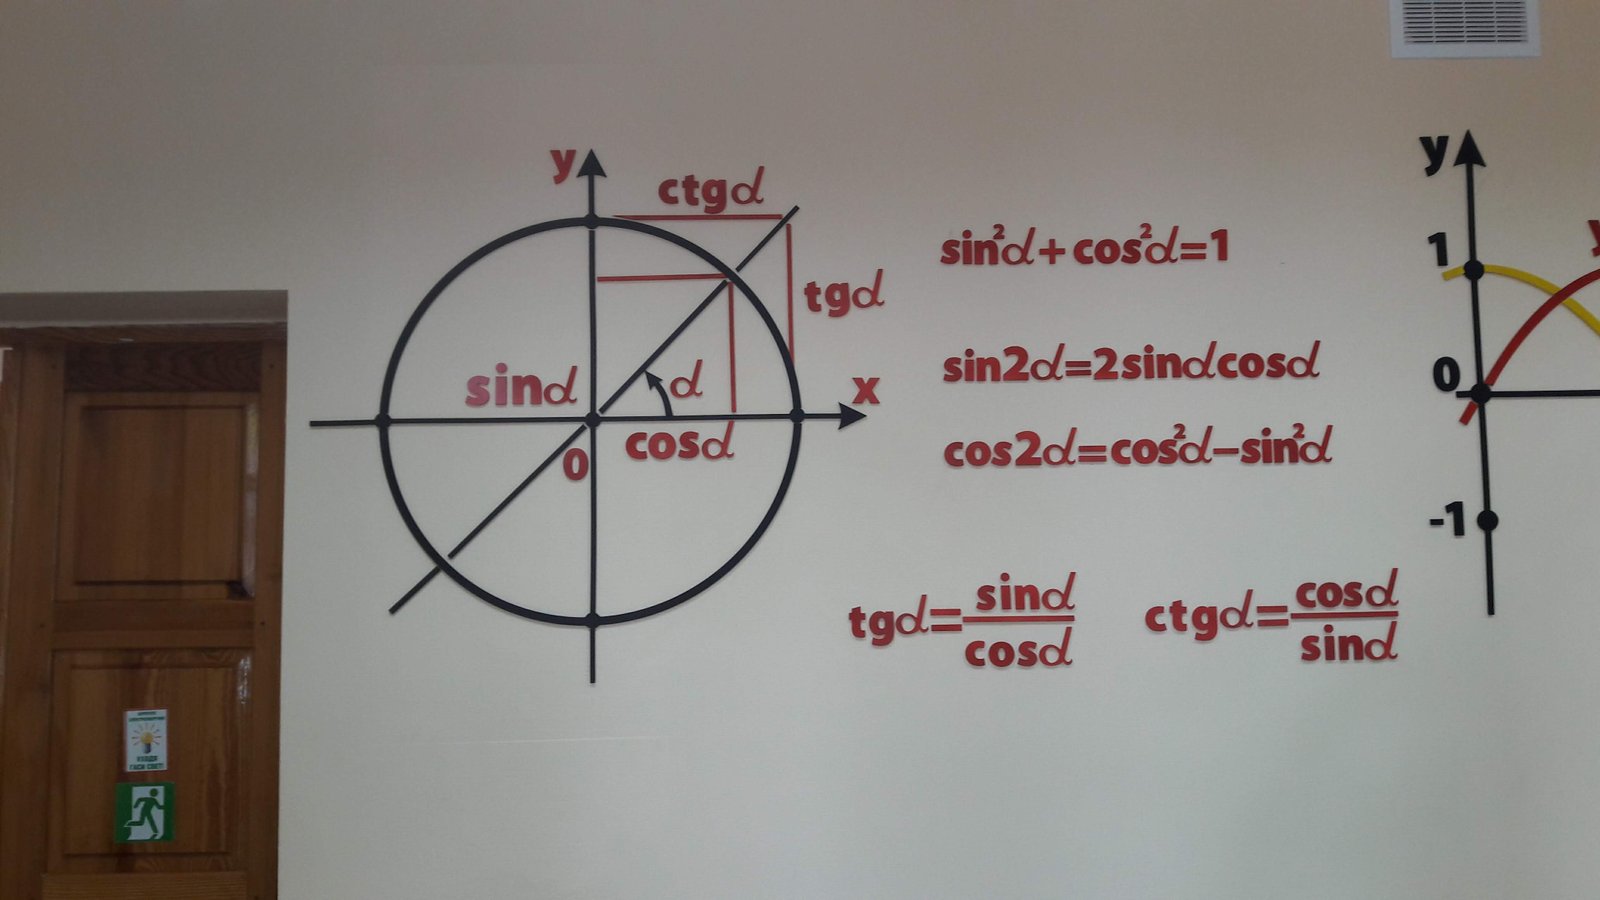 y
ctgα
tgα
sinα
α
x
cosα
0
sin²α+cos²α=1
sin2α=2sinαcosα
cos2α=cos²α-sin²α
tgα=sinα/cosα
ctgα=cosα/sinα
y
1
0
-1
y
УХОДЯ
ГАСИ СВЕТ!